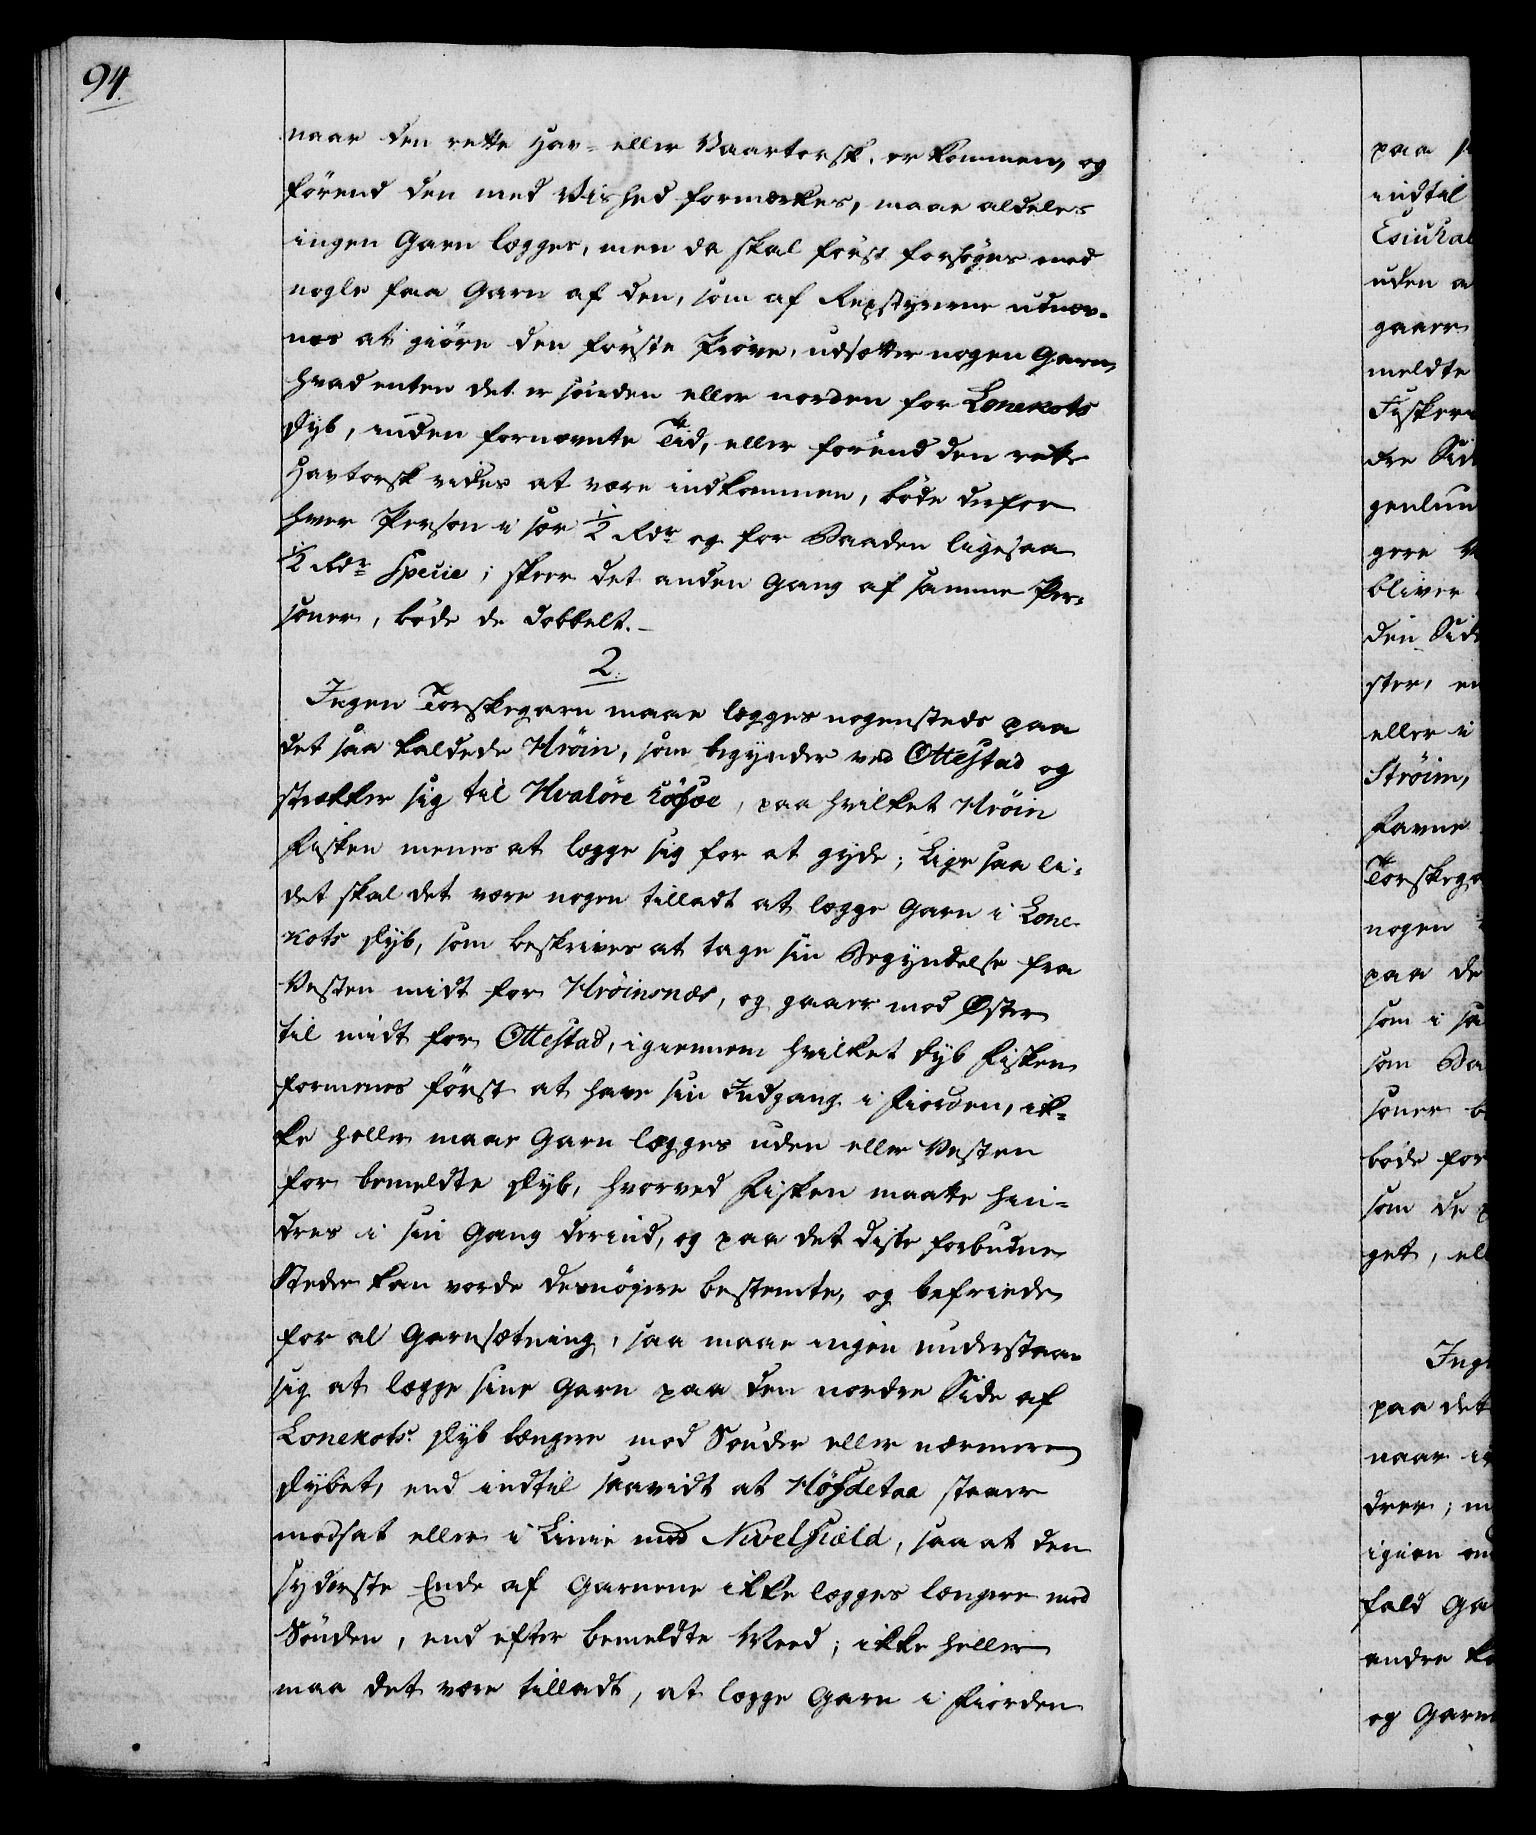 94.
naar den rette Hav- eller Vaartorsk er kommen, og
förend den med Vished formærkes, maae aldeles
ingen Garn lægges, men da skal först forsöges med
nogle faa Garn af den, som af Repstyrerne udnæv-
nes at giöre den förste Pröve, udsætter nogen Garn,
hvad enten det er sönden eller norden for Lonekots
Dyb, inden fornævnte Tid, eller förend den rette
Havtorsk vides at være indkommen, böde derfor
hver Person i sær ½ Rdr og for Baaden ligesaa
½ Rdr Specie; skeer det anden Gang af samme Per-
soner, böde de dobbelt.
2.
Ingen Torskegarn maae lægges nogensteds paa
det saa kaldede Hröin, som begynder ved Ottestad og
strækker sig til Hvalöre, paa hvilket Hröin
Fisken menes at lægge sig for at gyde; Lige saa li-
det skal det være nogen tilladt at lægge Garn i Lone-
kots Dyb, som beskrives at tage sin Begyndelse fra
Vesten midt for Hröinsnæs, og gaaer mod Öster
til midt for Ottestad, igiennem hvilket Dyb Fisken
formenes först at have sin Indgang i Fiorden, ik-
ke heller maae Garn lægges uden eller Vesten
for bemeldte Dyb, hvorved Fisken maatte hin-
dres i sin Gang derind, og paa det disse forbudne
Steder kan vorde desnöjere bestemte, og befriede
for al Garnsætning, saa maae ingen understaae
sig at lægge sine Garn paa den nordre Side af
Lonekots Dyb længere mod Sönder eller nærmere
Dybet, end indtil saavidt at Höfdetaa staaer
modsat eller i Linie med Nivelfiæld, saa at den
syderste Ende af Garnene ikke lægges længere mod
Sönden, end efter bemeldte Meed; ikke heller
maa det være tilladt, at lægge Garn i Fiorden
paa
indtil
uden a
gaaer
meldte
Fisker
dre Sid
genlun
gere
bliver
den Sid
ster, en
eller i
Ströim,
Favne
Torskega
nogen
paa de
som i sa
som Ba
soner b
böde for
som de
get, ell
Inge
paa det
naar
drer; m
igien
fald Ga
andre
og Garn